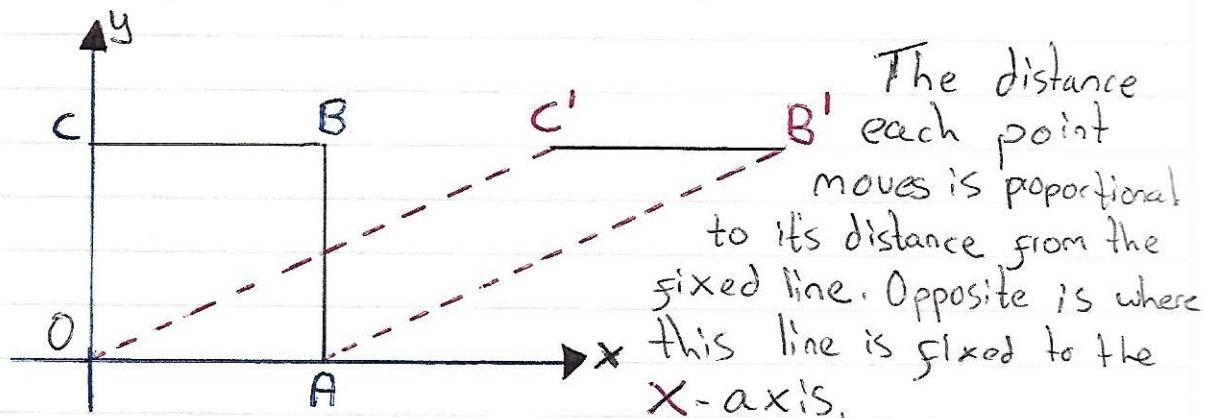 y
The distance
C B C' B' each point
moves is proportional
to it's distance from the
fixed line. Opposite is where
O x this line is fixed to the
A X-axis.